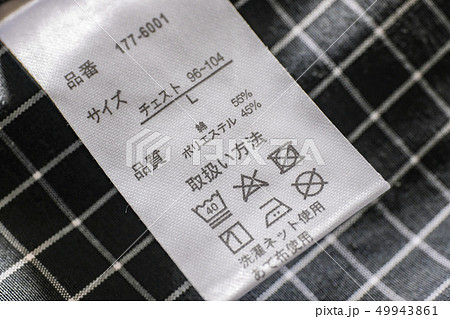 品番 177-6001
サイズ チェスト 96-104
L
品質 綿 55%
ポリエステル 45%
取扱い方法
40
洗濯ネット使用
あて布使用
PIXTA
pixta.jp - 49943861